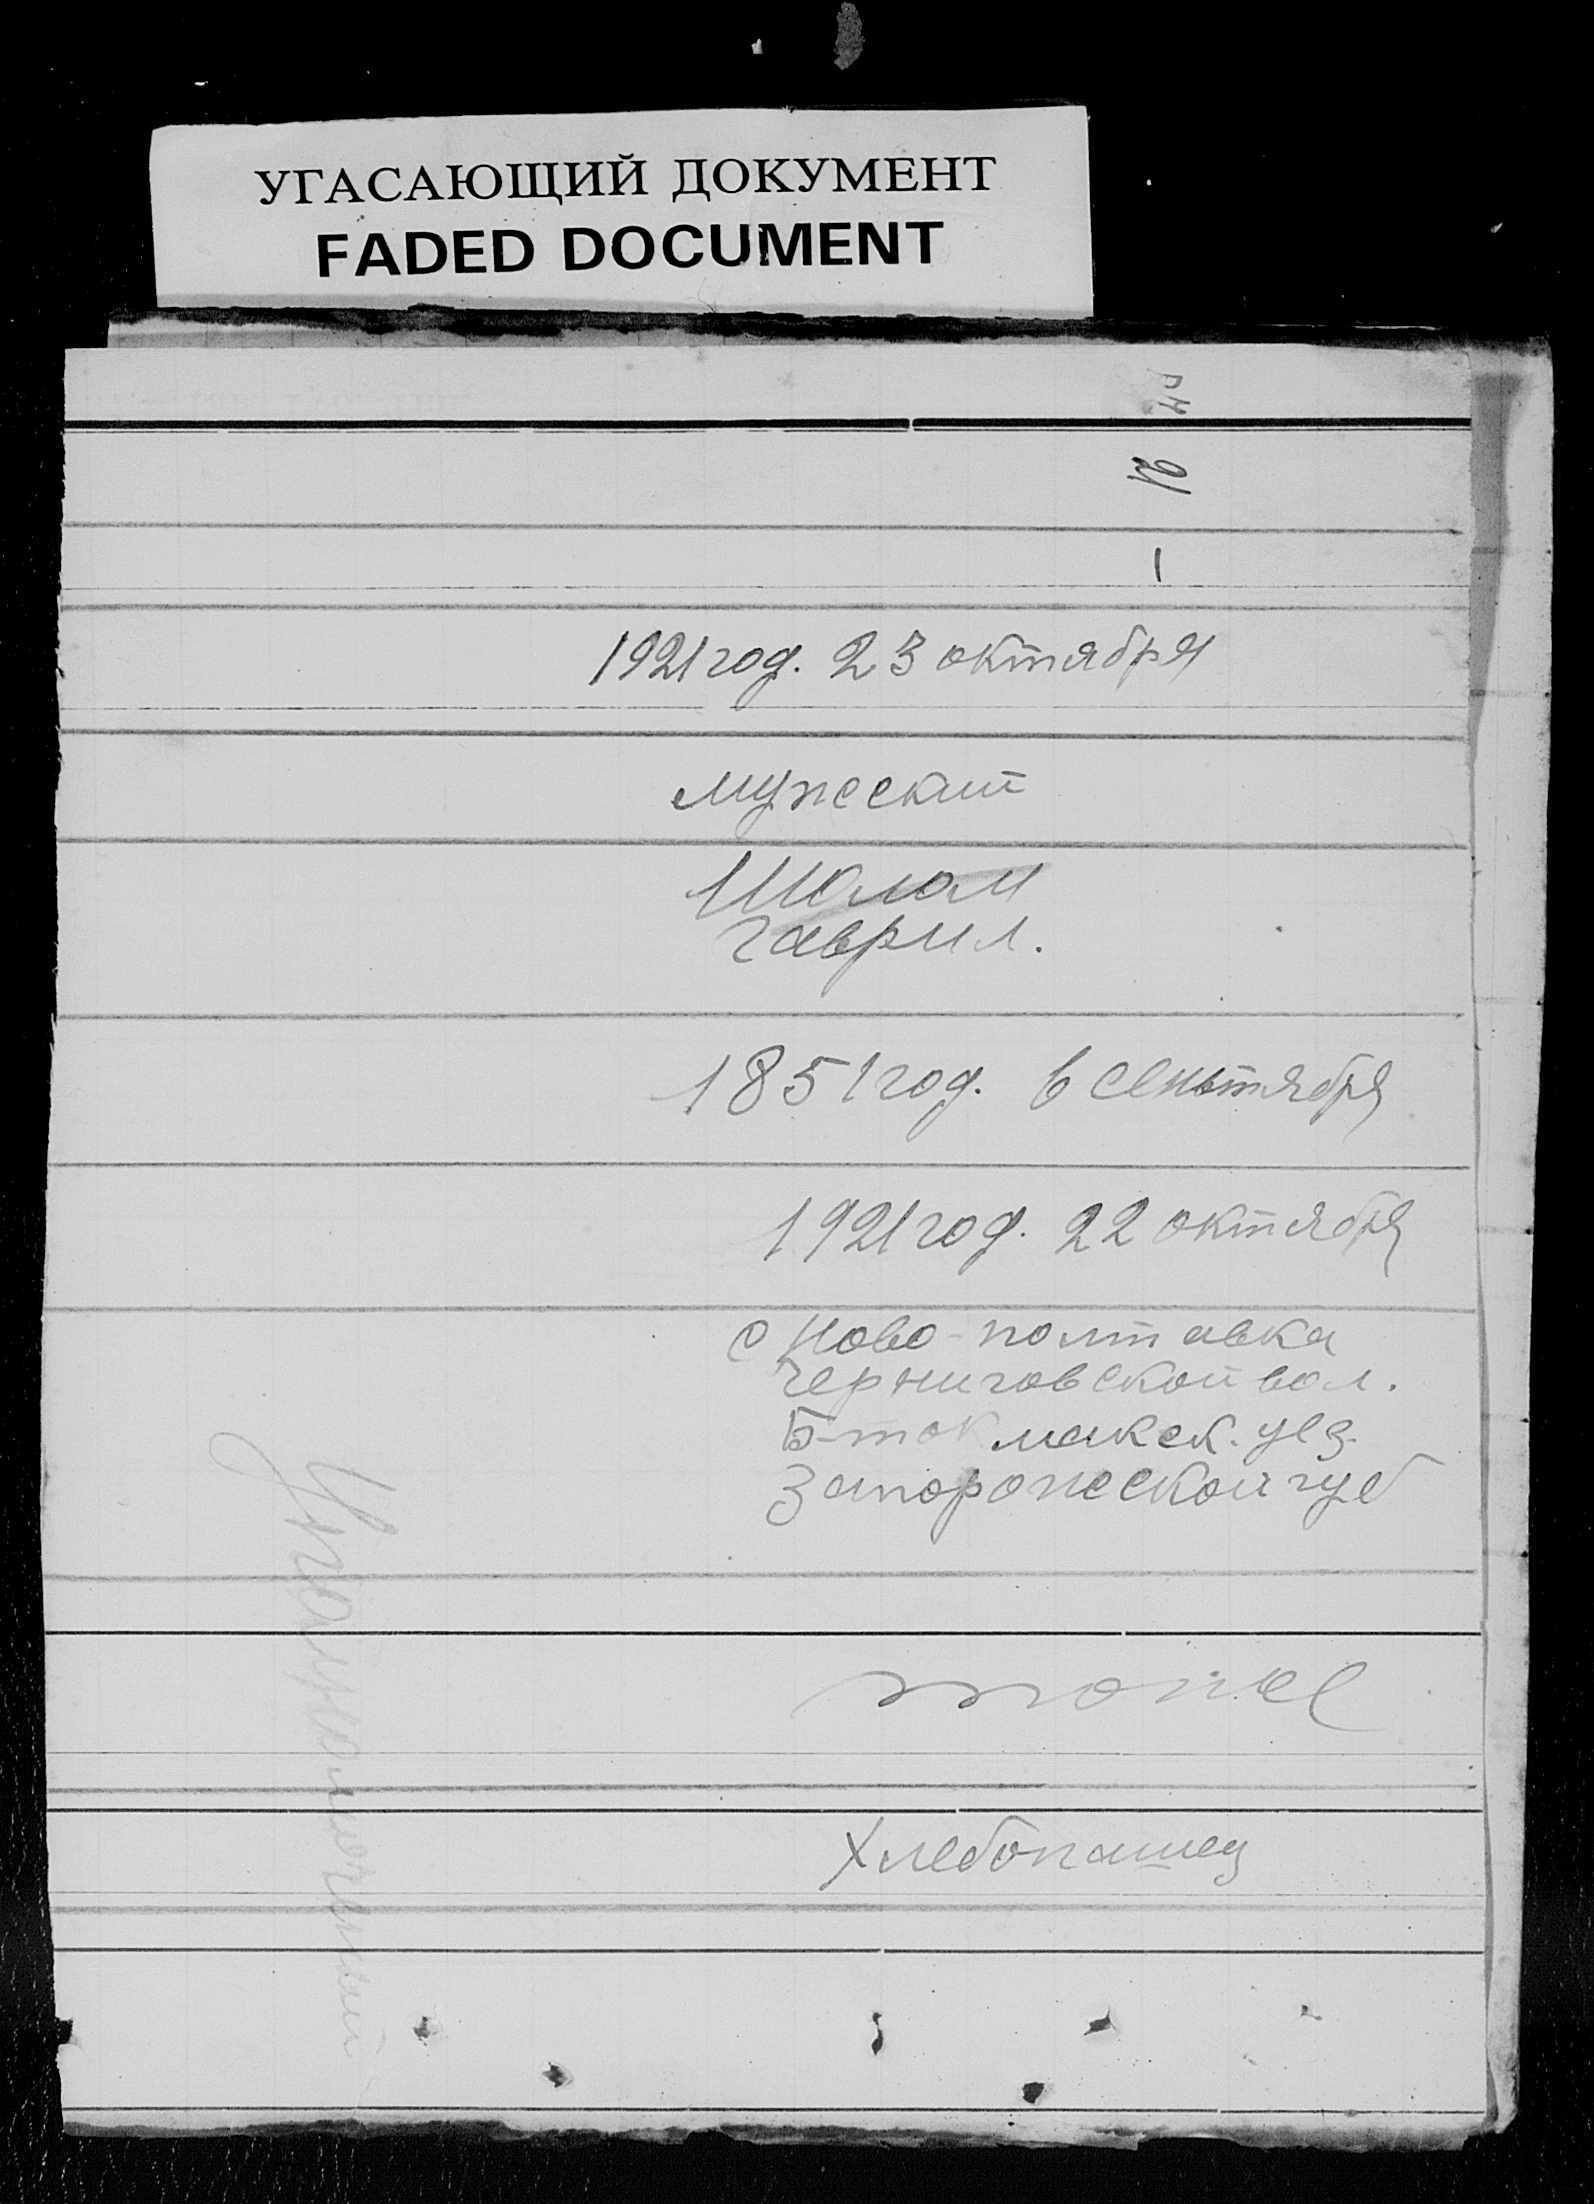 УГАСАЮЩИЙ ДОКУМЕНТ
FADED DOCUMENT
1921 год. 23 октября
мужеский
Шолом
Гаврил.
1851 год. 6 сеньтября
1921 год. 22 октября
с Ново-полтавка
Черниговской вол.
Б-токмакск. уез.
Запорожеской губ
тоже
Хлебопашец